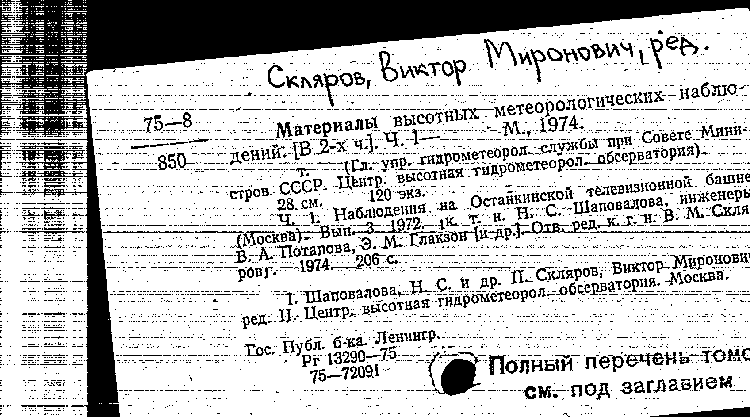 Скляров, Виктор Миронович, ред.
75—8
850
Материалы высотных метеорологических наблю-
дений. [В 2-х ч.]. Ч. 1— - М., 1974.
т. (Гл. упр. гидрометеорол. службы при Совете Мини-
стров СССР. Центр. высотная гидрометеорол. обсерватория).
28 см. 120 экз.
Ч. 1. Наблюдения на Останкинской телевизионной башне
(Москва). Вып. 3. 1972. [К. т. н. Н. С. Шаповалова, инженеры
В. А. Потапова, Э. М. Глакзон [и др.]. Отв. ред. к. г. н. В. М. Скля-
ров]. 1974. 206 с.
I. Шаповалова, Н. С. и др. II. Скляров, Виктор Миронович,
ред. II. Центр. высотная гидрометеорол. обсерватория. Москва.
Гос. Публ. б-ка Ленингр.
Рг 13290—75
75—72091
Полный перечень томо
см. под заглавием